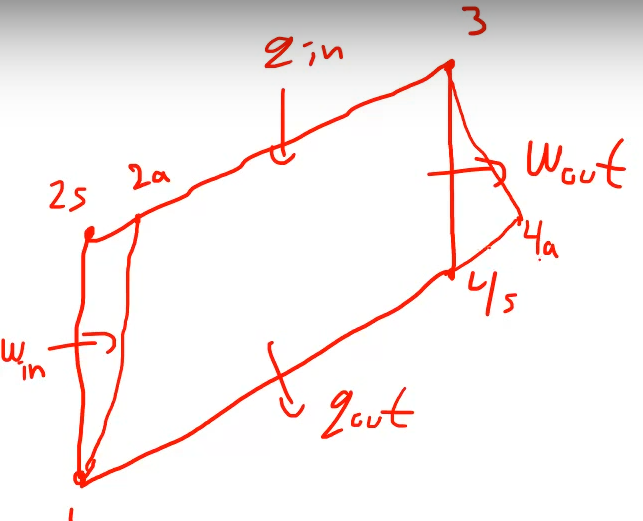 3
q in
2s
2a
Wout
4a
4s
Win
qout
1